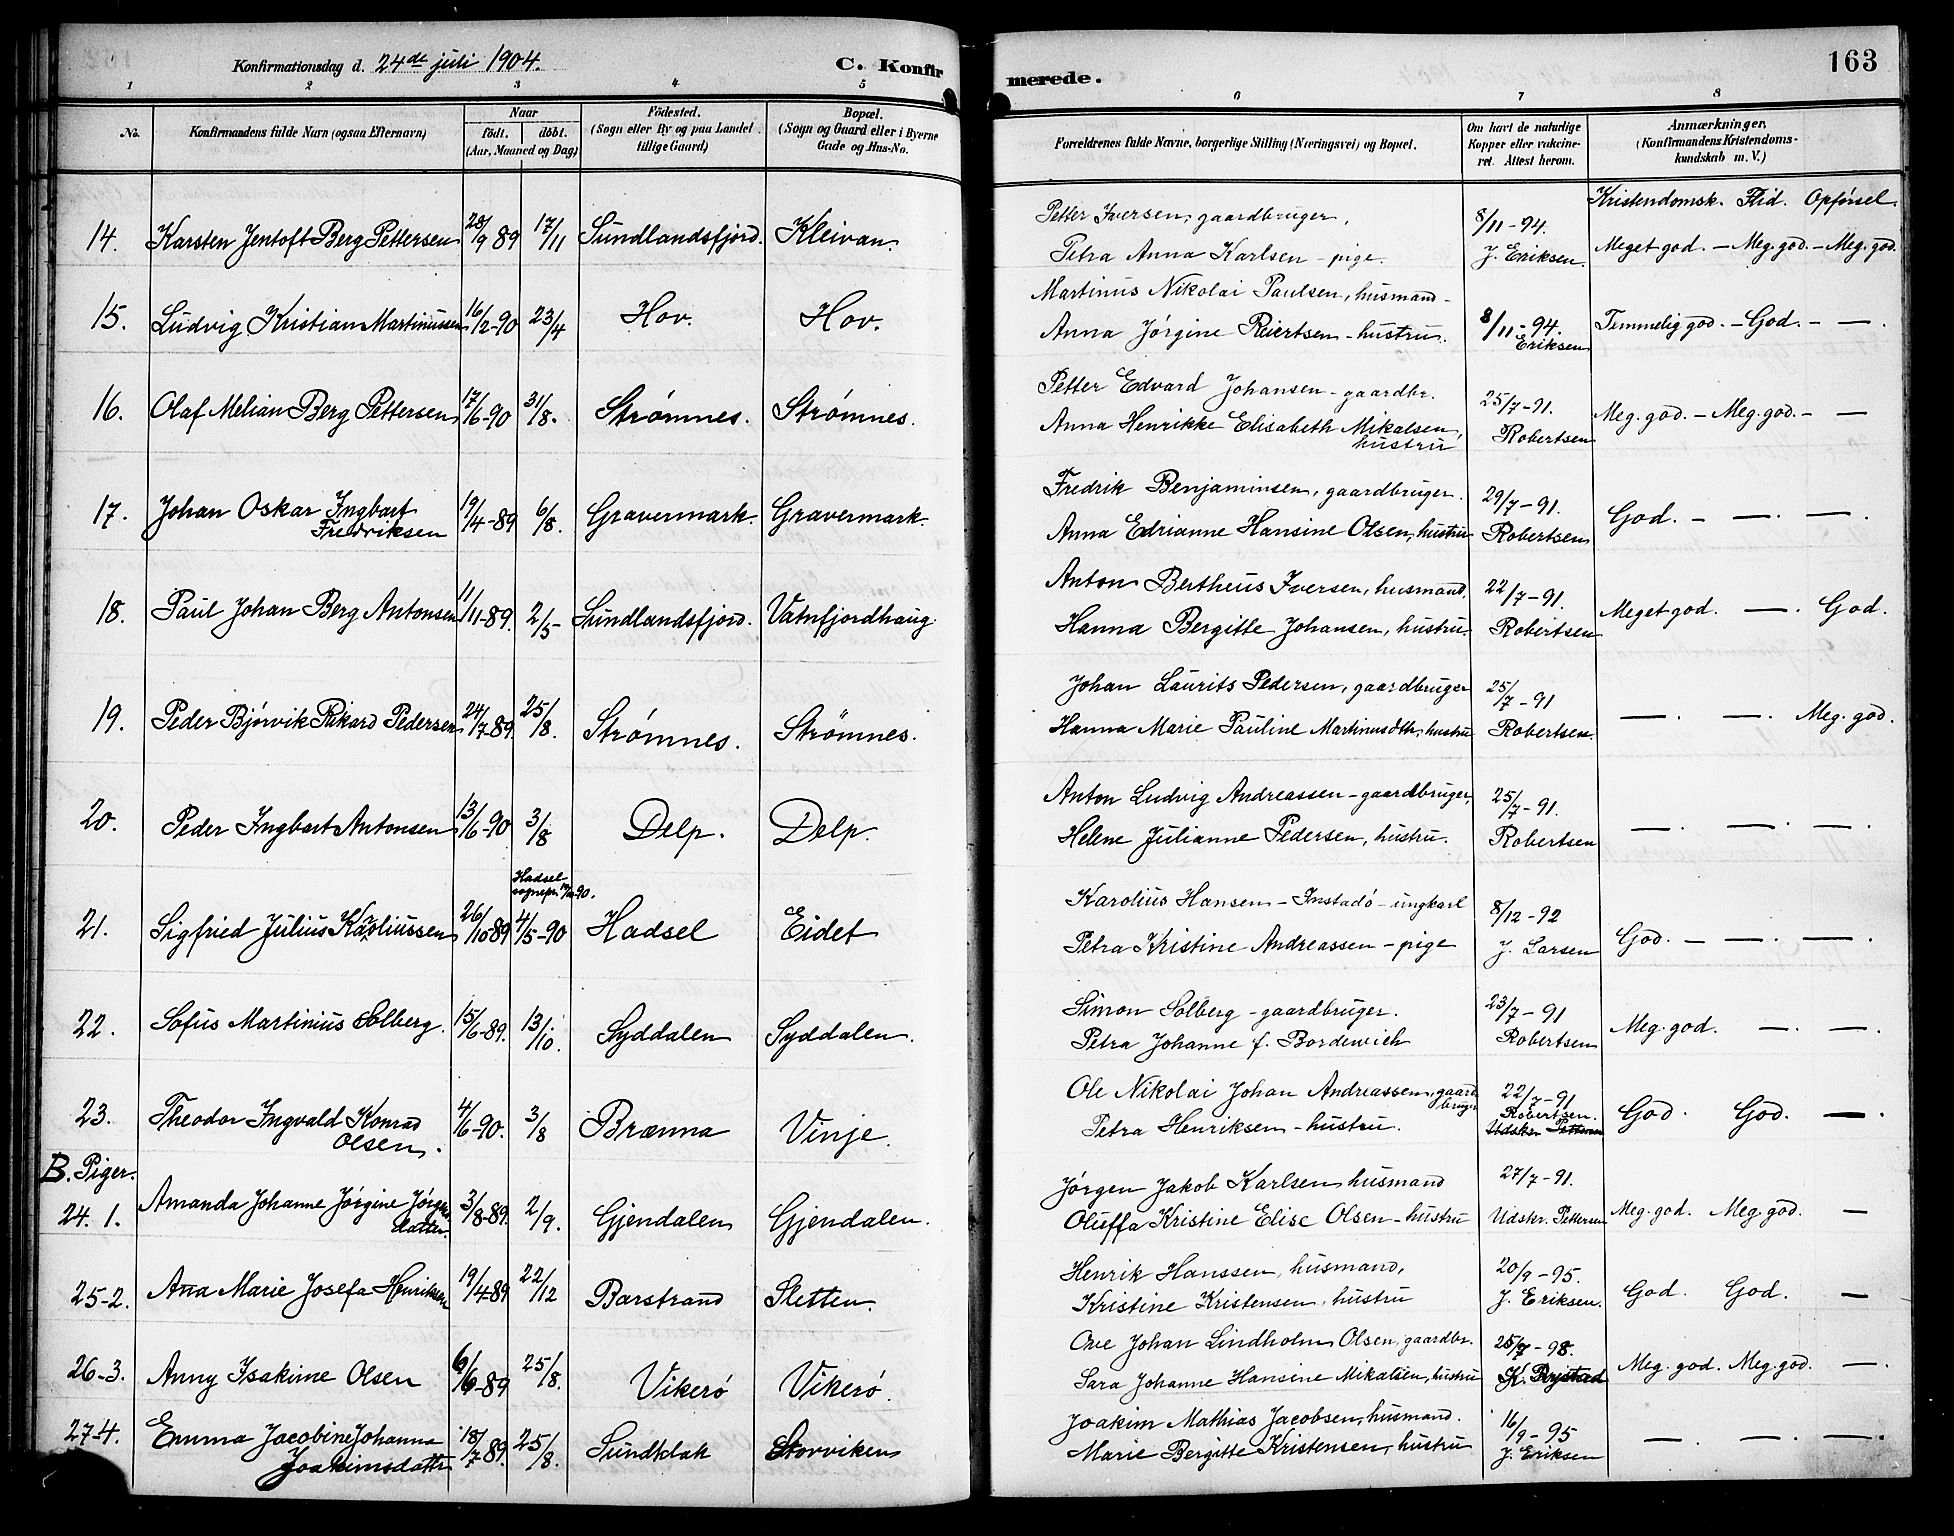 Konfirmationsdag d. 24de juli 1904.
C. Konfirmerede.
163
1 2 3 4 5 6 7 8
No.
Konfirmandens fulde Navn (ogsaa Efternavn)
Naar
födt. döbt.
(Aar, Maaned og Dag)
Födested.
(Sogn eller By og paa Landet tillige Gaard)
Bopæl.
(Sogn og Gaard eller i Byerne Gade og Hus-No.
Forældrenes fulde Navne, borgerlige Stilling (Næringsvei) og Bopæl.
Om havt de naturlige Kopper eller vakcineret. Attest herom.
Anmærkninger.
(Konfirmandens Kristendomskundskab m. V.)
Kristendomsk. Flid. Opførsel.
14. Karsten Jentoft Berg Pettersen 28/9 89 17/11 Sundlandsfjord. Kleivan.
Petter Iversen, gaardbruger,
Petra Anna Karlsen - pige.
8/11-94.
J. Eriksen.
Meget god. - Meg. god. - Meg. god.
15. Ludvig Kristian Martinussen 16/2-90 23/4 Hov. Hov.
Martinus Nikolai Paulsen, husmand -
Anna Jørgine Reiertsen - hustru.
8/11-94.
Eriksen
Temmelig god. - God. - —.
16. Olaf Melian Berg Pettersen 17/6-90 31/8. Strømnes. Strømnes.
Petter Edvard Johansen - gaardbr.
Anna Henrikke Elisabeth Mikalsen,
hustru
25/7-91.
Robertsen
Meg. god. - Meg. god. - —
17. Johan Oskar Ingbart
Fredriksen 19/4-89 6/8. Gravermark. Gravermark.
Fredrik Benjaminsen, gaardbruger.
Anna Edrianne Hansine Olsen, hustru
29/7-91.
Robertsen
God. - —. —.
18. Paul Johan Berg Antonsen 11/11-89. 2/5- Sundlandsfjord. Vatnfjordhaug.
Anton Bertheus Iversen, husmand,
Hanna Bergitte Johansen, hustru.
22/7-91.
Robertsen
Meget god. —. God.
19. Peder Bjørvik Rikard Pedersen 24/7-89. 25/8. Strømnes. Strømnes.
Johan Laurits Pedersen, gaardbruger
Hanna Marie Pauline Martinusdtr, hustru
25/7-91
Robertsen.
—. —. Meg. god.
20. Peder Ingbart Antonsen 13/6-90 3/8 Delp. Delp.
Anton Ludvig Andreassen - gaardbruger,
Helene Julianne Pedersen, hustru.
25/7-91.
Robertsen
—. —. —.
Hadsel
21. Sigfried Julius Karoliussen 26/10-89 4/5-90 Hadsel Eidet
Karolius Hansen - Instadø - ungkarl
Petra Kristine Andreassen - pige
8/12-92
J. Larsen
God. - —. —.
22. Sofus Martinius Solberg. 15/6-89. 13/10. Syddalen Syddalen.
Simon Solberg - gaardbruger.
Petra Johanne f. Bordewich
23/7-91
Robertsen
Meg. god. —. —.
23. Theodor Ingvald Konrad
Olsen. 4/6-90. 3/8 Brænna Vinje.
Ole Nikolai Johan Andreassen, gaard
bruger
Petra Henriksen - hustru.
22/7-91
Robertsen.
Udskr. Pettersen
God. God. —.
B. Piger.
24. 1. Amanda Johanne Jørgine Jørgens
datter. 3/8-89. 2/9. Gjendalen Gjendalen.
Jørgen Jakob Karlsen husmand
Oluffa Kristine Elise Olsen - hustru
27/7-91.
Udskr. Pettersen
Meg. god. Meg. god. —
25-2. Ana Marie Josefa Henriksen 19/4-89 22/12 Barstrand Sletten.
Henrik Hanssen, husmand,
Kristine Kristensen, hustru
20/9-95.
J. Eriksen.
God. God. —
26-3. Anny Isakine Olsen 6/6-89 25/8. Vikerø Vikerø.
Ove Johan Lindholm Olsen, gaardbr.
Sara Johanne Hansine Mikalsen, hustru
25/7-98.
K. Rystad
Meg. god. Meg. god. —.
27-4. Emma Jacobine Johanna
Joakimsdattr 18/7-89. 25/8. Sundklak Storviken
Joakim Mathias Jacobsen, husmand.
Marie Bergitte Kristensen, hustru
16/9-95
J. Eriksen
—. —. —.